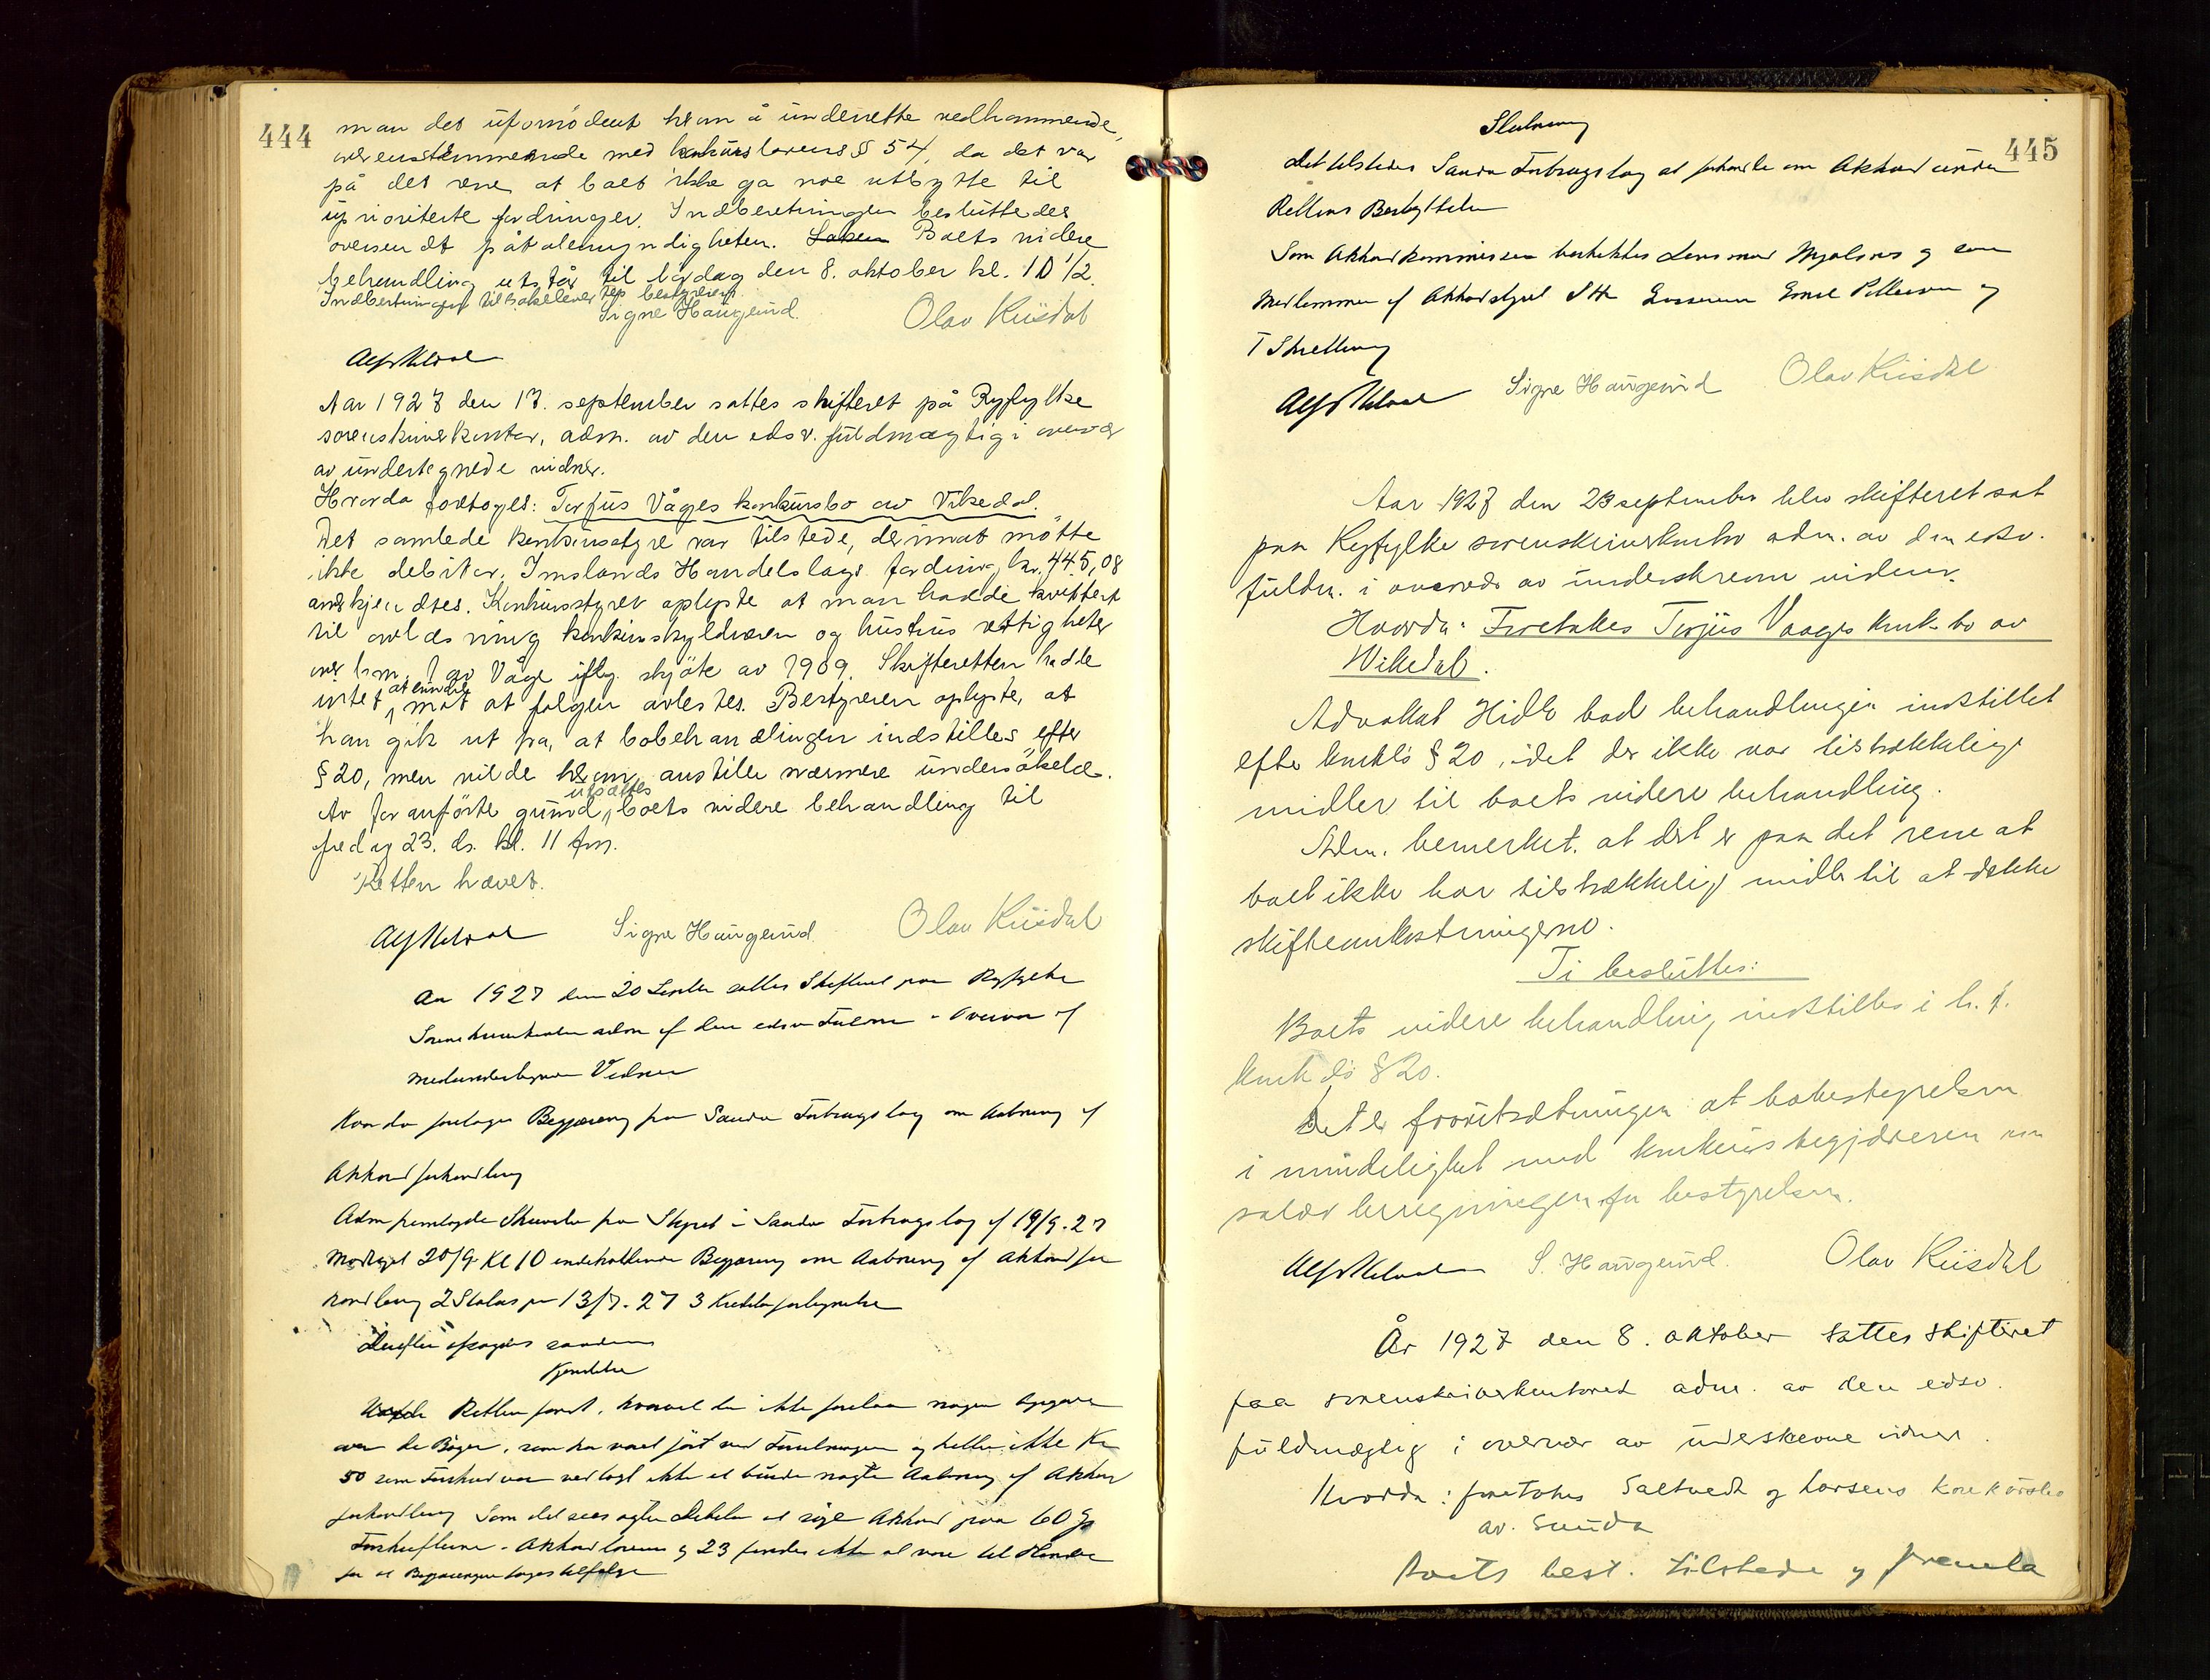 444
man det ufornödent hram å underrette vedkommende,
overenstemmende med konkurslovens § 54, da det var
på det rene at boet ikke ga noe utbytte til
uprioriterte fordringer. Indberetningen besluttedes
oversendt påtalemyndigheten. Saken Boets videre
behandling utstår til lördag den 8. oktober kl. 10 1/2.
Indberetningen tilbakeleveres bestyreren.
Signe Haugerud. Olav Riisdal
Aar 1927 den 17. september sattes skifteret på Ryfylke
sorenskriverkontor, adm. av den edsv. fuldmægtig i overvær
av undertegnede vidner.
Hvorda foretoges: Torjus Våges konkursbo av Vikedal.
Det samlede konkursstyre var tilstede, derimot mötte
ikke debitor. Imslands Handelslags fordring, kr. 445,08
anerkjendtes. Konkursstyret oplyste at man hadde kvittert
til avlæsning konkursskyldneren og hustrus rettigheter
over br.nr. 1 av Våge iflg. skjöte av 1909. Skifteretten hadde
intet at erindre mot at folgen avlestes. Bestyreren oplyste, at
han gik ut fra, at bobehandlingen indstilles efter
§ 20, men vilde hram anstille nærmere undersökelse.
Av foranförte grund utsattes boets videre behandling til
fredag 23. ds. kl. 11 fm.
Retten hævet.
Signe Haugerud. Olav Riisdal
Aar 1927 den 20 Septbr sattes Skifteret paa Ryfylke
Sorenskriverkontor adm af den edsv Fuldm i Overvær af
medundertegnede Vidner
Hvorda foretoges Begjæring fra Sauda Fortrugslag om Aabning af
Akkordforhandling
Adm fremlagde Skrivelse fra Styret i Sauda Fortrugslag af 19/9.27
modtaget 20/9 Kl 10 indeholdende Begjæring om Aabning af Akkordfor
handling 2 Status pr 13/7.27 3 Kreditorfortegnelse
Derefter afsagdes saadan
Kjendelse
Retten fandt, hvorvel der ikke forelaa nogen Opgave
over de Böger, som har været fört ved Forretningen og heller ikke Kr
50 som Forskud var vedlagt ikke at burde nægte Aabning af Akkord
forhandling Som det sees agter Debitor at söge Akkord paa 60 %
Forskrifterne i Akkordlovens § 23 findes ikke at være til Hinder
for at Begjæringen tages tilfölge
445
Slutning
Det tilstedes Sauda Fortrugslag at forhandle om Akkord under
Rettens Beskyttelse
Som Akkordkommissær beskikkes Lensmand Mjølsnes og som
Medlemmer af Akkordstyret Sth Gusserum Ernst Pettersen og
T Skretting
Signe Haugerud Olav Riisdal
Aar 1927 den 23 september blev skifteret sat
paa Ryfylke sorenskriverkontor adm. av den edsv.
fuldm. i overvær av underskrevne vidner.
Hvorda: Foretokes Torjus Vaages konk.bo av
Wikedal.
Advokat Hidle bad behandlingen indstillet
efter konkls § 20, idet der ikke var tilstrækkelige
midler til boets videre behandling.
Adm. bemerket at det er paa det rene at
boet ikke har tilstrækkelige midler til at dække
skifteomkostningerne.
Ti besluttes:
Boets videre behandling indstilles i h. t.
konk ls § 20.
Det er forutsætningen at bobestyrelsen
i mindelighet med konkursbegjæreren om
salær beregningen for bestyrelsen.
S. Haugerud. Olav Riisdal
År 1927 den 8. oktober sattes skifteret
paa sorenskriverkontoret adm. av den edsv.
fuldmægtig i overvær av underskrevne vidner.
Hvorda: foretokes Saltvedt og Larsens konkursbo
av Sauda
Boets best. tilstede og fremla